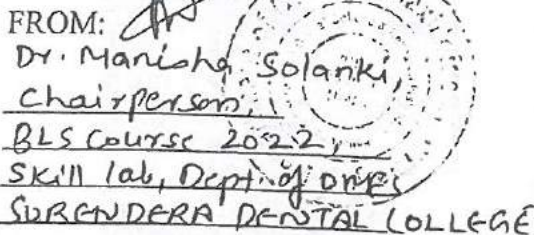 FROM:
Dr. Manisha Solanki,
Chairperson,
BLS Course 2022,
Skill lab, Dept. of OMFS
SURENDERA DENTAL COLLEGE